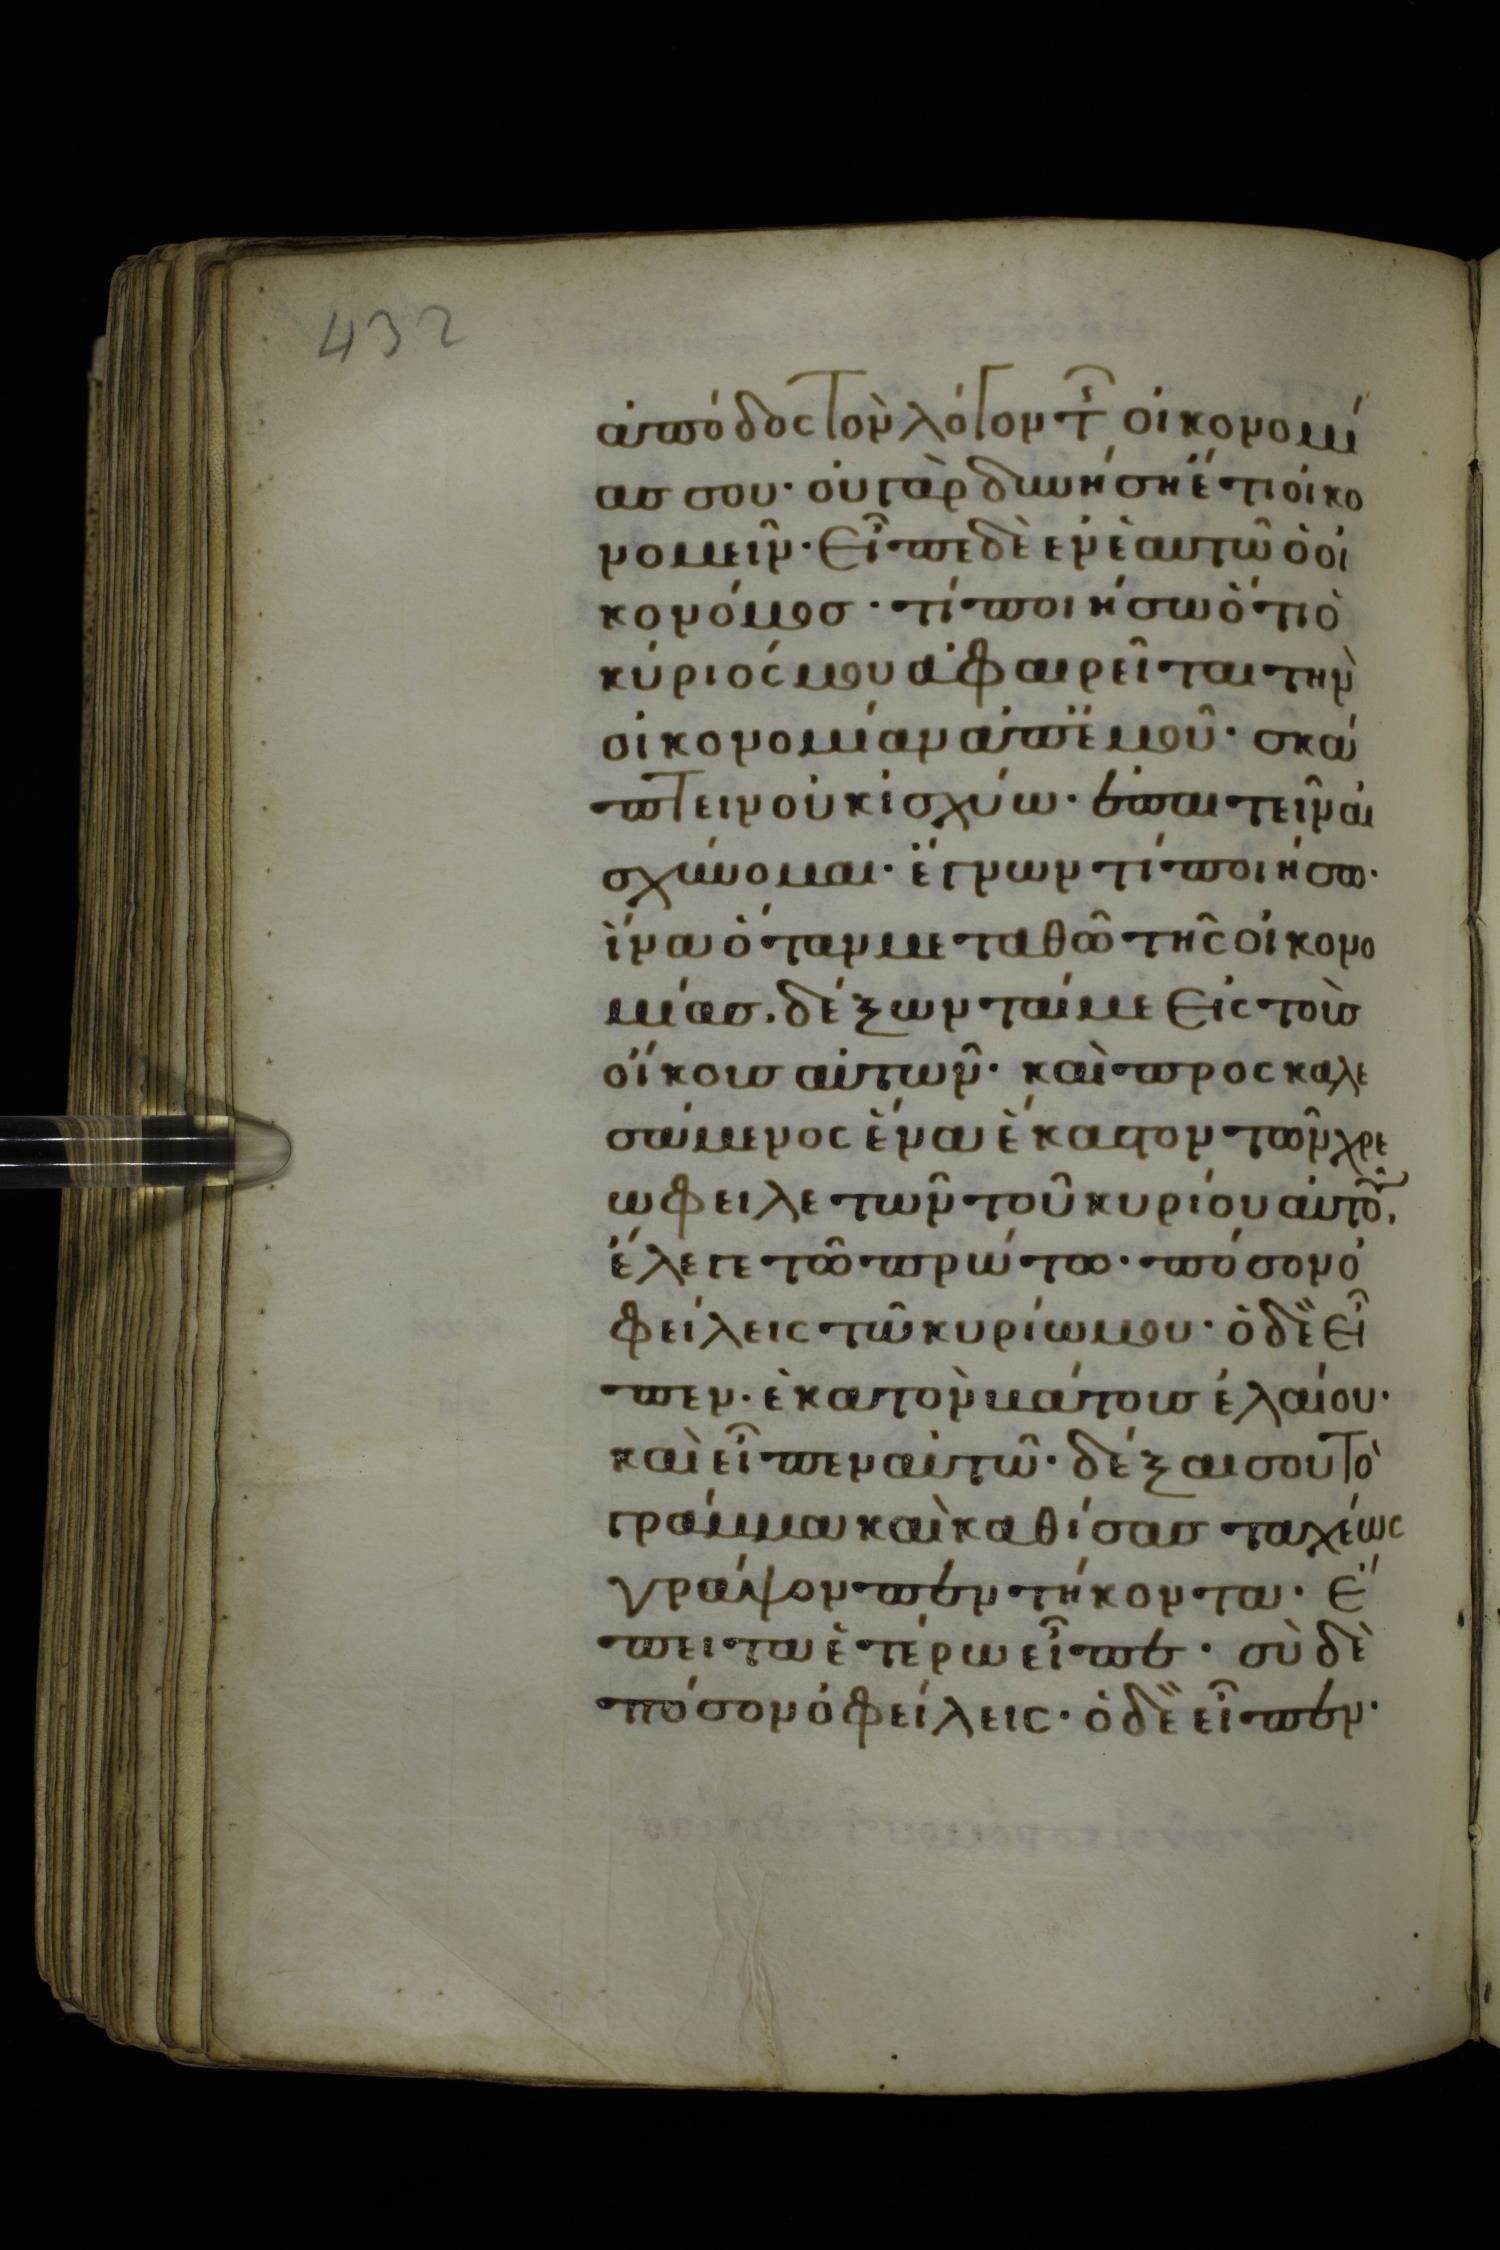 432
ἀπόδος τὸν λόγον τῆς οἰκονομί
ασ σου· οὐ γὰρ δυνήση ἔτι οἰκο
νομεῖν· Εἶπε δὲ ἐν ἑαυτῶ ὁ οἰ
κονόμοσ· τί ποιήσω ὅτι ὁ
κύριός μου ἀφαιρεῖται τὴν
οἰκονομίαν ἀπ ἐμοῦ· σκά
πτειν οὐκ ἰσχύω· ἐπαιτεῖν αἰ
σχύνομαι· ἔγνων τί ποιήσω·
ἵνα ὅταν μεταθῶ τῆς οἰκονο
μίασ. δέξωνταί με Εἰς τοὺσ
οἴκουσ αὐτῶν· καὶ προσκαλε
σάμενος ἕνα ἕκαστον τῶν χρε
ωφειλετῶν τοῦ κυρίου αὐτοῦ,
ἔλεγε τῶ πρώτω· πόσον ὀ
φείλεις τῶ κυρίω μου· ὁ δὲ Εἶ
πεν· ἑκατὸν κάδουσ ἐλαίου·
καὶ εἶπεν αὐτῶ· δέξαι σου τὸ
γράμμα καὶ καθίσασ ταχέως
γράψον πεντήκοντα· Ἔ
πειτα ἑτέρω εἶπε· σὺ δὲ
πόσον ὀφείλεις· ὁ δὲ εἶπεν·